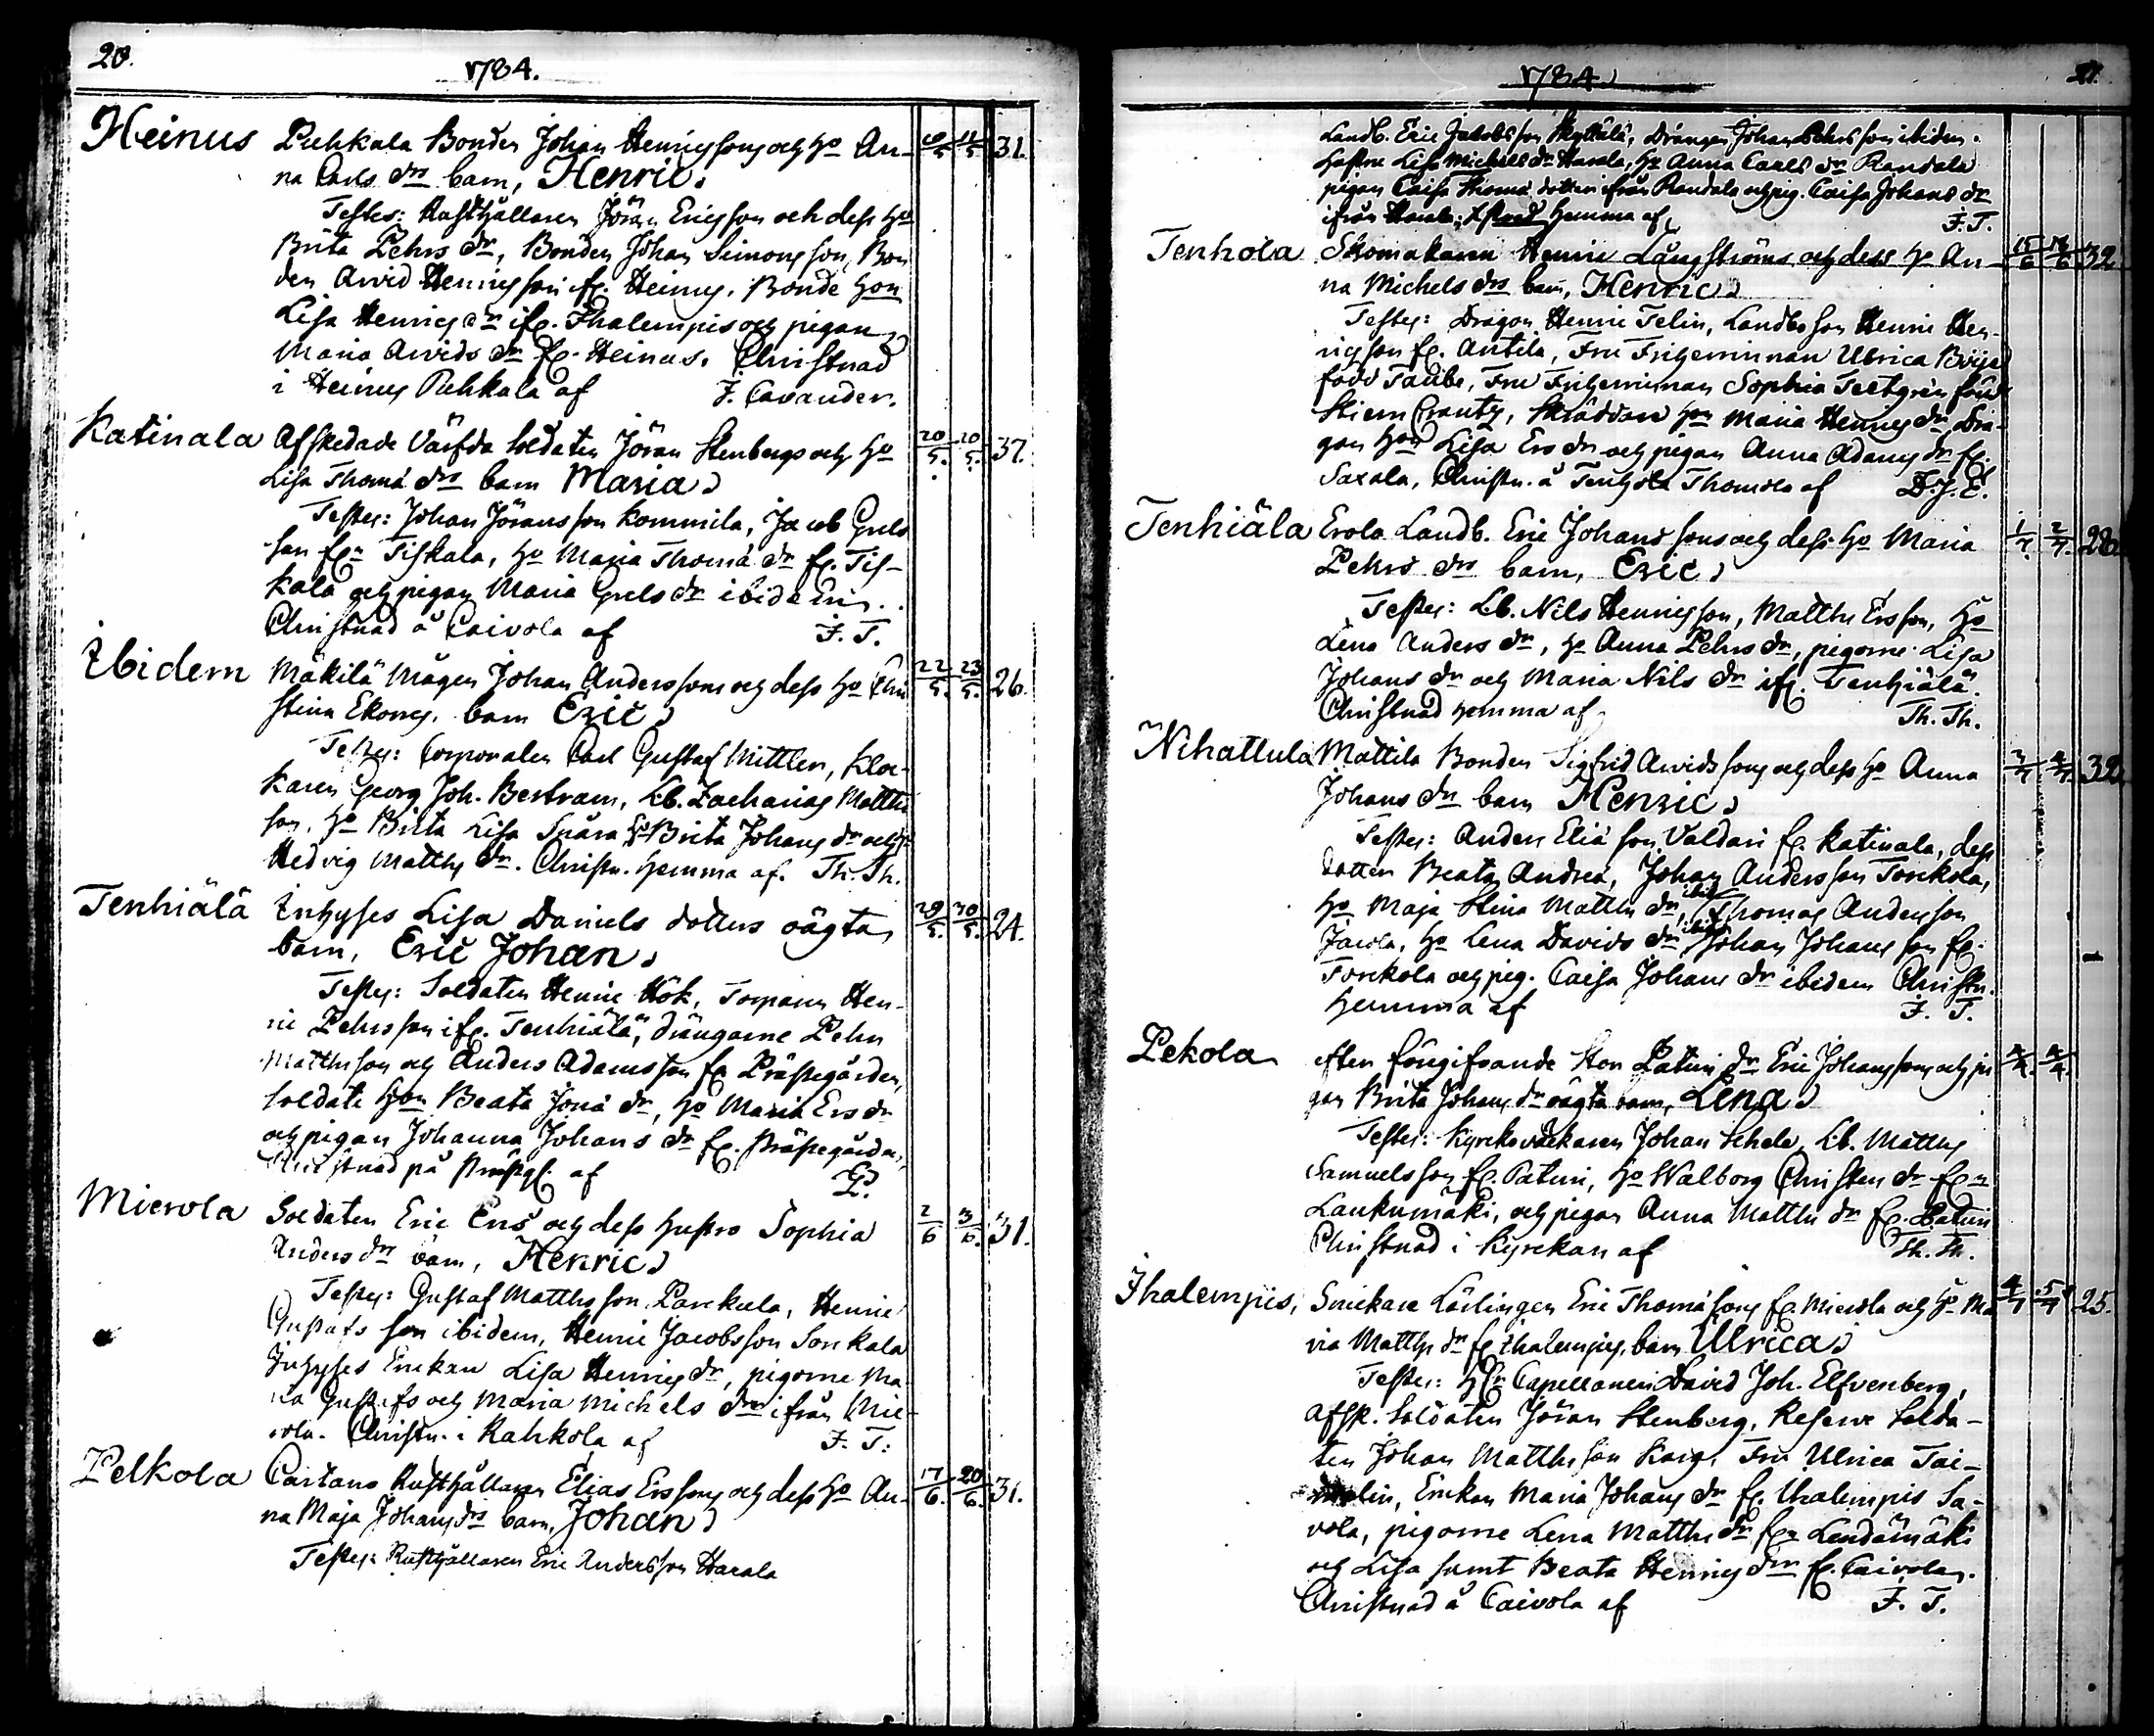 20.
1784.
Heinus Puhkala Bonden Johan Henricssons och Ho An- 10/5 11/5 31.
na Carls drs barn, Henric.
Testes: Rusthållaren Jöran Ericsson och dess Ho
Brita Pehrs dr, Bonden Johan Simonsson, Bon
den Arvid Henricsson fr. Heinus, Bonde Hon
Lisa Henrics dr ifr. Ihalempis och pigan
Maria Arvids dr fr. Heinus. Christnad
i Heinus Puhkala af J. Cavander.
Katinala Afskedade Värfda Soldaten Jöran Stenbergs och Ho 20/5. 20/5. 37.
Lisa Thomæ drs barn Maria
Testes: Johan Jöransson Kommila, Jacob Grels
son frn Tiskala, Ho Maria Thomæ dr fr. Tis-
kala och pigan Maria Grels dr ibidem.
Christnad å Caivola af J. T.
Ibidem Mäkilä Mågen Johan Anderssons och dess Ho Chri 22/5. 23/5. 26.
stina Ekorns. barn Eric
Testes: Corporalen Carl Gustaf Mittler, Kloc-
karen Georg Joh. Bertram, Lb. Zacharias Matths
son, Ho Brita Lisa Snåra, Ho Brita Johans dr och p.
Hedvig Matths dr. Christn. hemma af. Th. Th.
Tenhiälä Inhyses Lisa Daniels dotters oägta 29/5. 30/5. 24.
barn, Eric Johan.
Testes: Soldaten Henric Hök, Torparen Hen-
ric Pehrsson ifr. Tenhiälä, drängarne Pehr
Matthsson och Anders Adamsson fr Prästegården,
Soldate Hon Beata Jonæ dr, Ho Maria Ers dr
och pigan Johanna Johans dr fr. Prästegården,
Christnad på Prästg. af P.
Mierola Soldaten Eric Ens och dess Hustro Sophia 2/6 3/6. 31.
Anders drs barn, Henric
Testes: Gustaf Matthsson Parckula, Henric
Gustafs son ibidem, Henric Jacobsson Sorckala
Inhyses Enckan Lisa Henrics dr, pigorne Ma-
ria Gustafs och Maria Michels drar ifrån Mie-
rola. Christn. i Rahkola af J. T.
Pelkola Cartano Rusthållaren Elias Erssons och dess Ho An- 17/6. 20/6. 31.
na Maja Johans drs barn, Johan
Testes: Rusthållaren Eric Andersson Harala
1784. 21.
Landb. Eric Jacobsson Skyttälä, Drängen Johan Pehrsson ibidem.
Hustru Lisa Michels dr Harala, Ho Anna Carls dr Randala
pigan Caisa Thomæ dotter ifrån Randala och pig. Caisa Johans dr
ifrån Harala; Xstnad hemma af J. T.
Tenhola Skomakaren Henric Långströms och dess Ho An- 15/6 16/6 32
na Michels drs barn, Henric
Testes: Dragon Henric Telin, Landbo son Henric Hen-
ricsson fr. Antila, Fru Friherrinnan Ulrica Boije
född Taube, Fru Friherrinnan Sophia Teetgren född
Stiern Crantz, Skräddare Hon Maria Henrics dr, Dra-
gon Hon Lisa Ers dr och pigan Anna Adams dr fr.
Saxala, Christn. å Tenhola Thomola af D. J. E.
Tenhiäla Erola Landb. Eric Johans sons och dess Ho Maria 1/7. 2/7. 28
Pehrs drs barn, Eric
Testes: Lb. Nils Henricsson, Matths Ersson, Ho
Lena Anders dr, Ho Anna Pehrs dr, pigorne Lisa
Johans dr och Maria Nils dr ifr. Tenhiälä.
Christnad hemma af Th. Th.
Nihattula Mattila Bonden Sigfrid Arvidssons och dess Ho Anna 3/7 4/7 32
Johans drs barn Henric
Testes: Anders Eliæ son Valdari fr. Katinala, dess
dotter Beata Andreæ, Johan Andersson Torckola,
Ho Maja Stina Matths dr, ibid Thomas Andersson
Jacola, Ho Lena Davids dr ibid, Johan Johans son fr.
Torckola och pig. Caisa Johans dr ibidem Christn.
hemma af J. T.
Pekola efter föregifvande Stor Paturi dr Eric Johanssons och pi 4/7. 4/7.
gan Brita Johans drs oägta barn, Lena
Testes: Kyrckoväcktaren Johan Schele, Lb. Matths
Samuelsson fr. Paturi, Ho Walborg Christers dr frn
Laukumäki, och pigan Anna Matths dr fr. Paturi
Christnad i Kyrckan af Th. Th.
Ihalempis, Snickare Lärlingen Eric Thomæsons fr. Mierola och Ho Ma 4/7 5/7 25.
ria Matths dr fr Ihalempis, barn Ulrica
Testes: Hr Capellanen David Joh. Elfvenberg,
Afsk. Soldaten Jöran Stenberg, Reserve Solda-
ten Johan Matthsson Karg, Fru Ulrica Tai-
melin, Enckan Maria Johans dr fr. Ihalempis Sa-
vola, pigorne Lena Matths dr frn Lendämäki
och Lisa samt Beata Henrics drar fr. Caivola.
Christnad å Caivola af J. T.